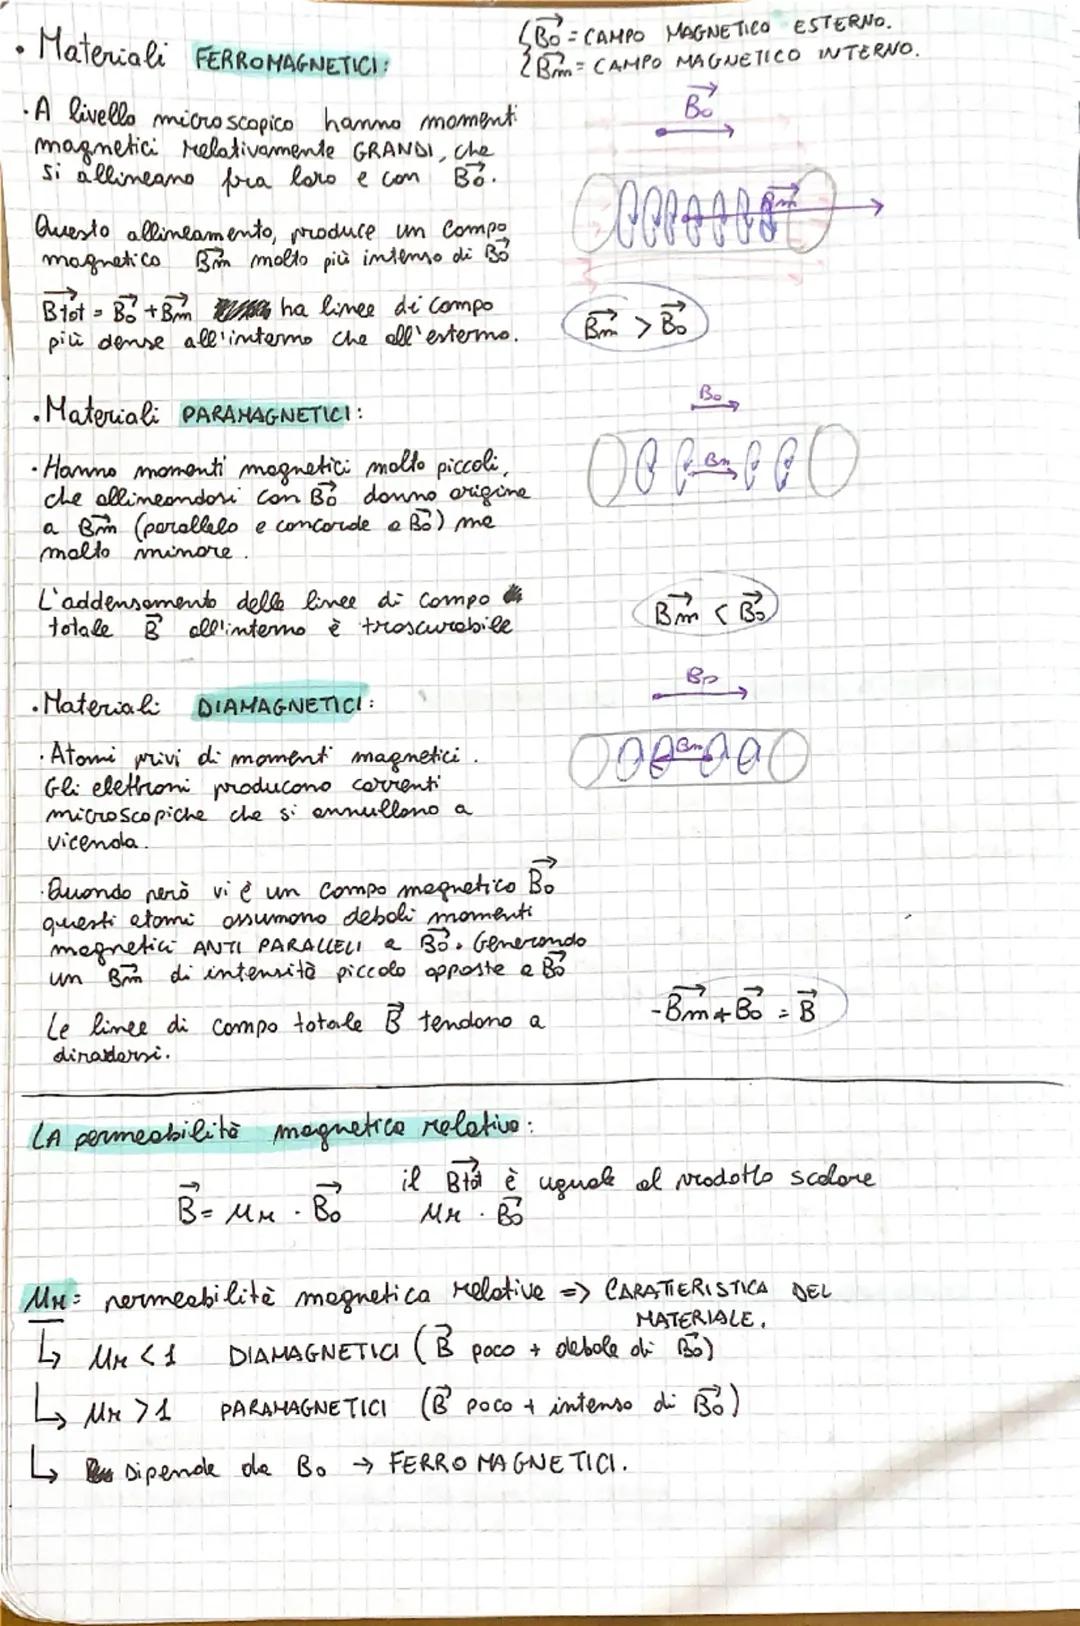 • Materiali FERROMAGNETICI:
B₀ = CAMPO MAGNETICO ESTERNO.
Bm = CAMPO MAGNETICO INTERNO.
· A livello microscopico hanno momenti
magnetici relativamente GRANDI, che
si allineano fra loro e con B₀.
Questo allineamento, produce un campo
magnetico Bm molto più intenso di B₀
Btot = B₀ + Bm ha linee di campo
più dense all'interno che all'esterno.
B₀
Bm
Bm > B₀
• Materiali PARAMAGNETICI:
· Hanno momenti magnetici molto piccoli,
che allineandosi con B₀ danno origine
a Bm (parallelo e concorde a B₀) ma
molto minore.
L'addensamento delle linee di campo
totale B all'interno è trascurabile
B₀
Bm
Bm < B₀
• Materiali DIAMAGNETICI:
· Atomi privi di momenti magnetici.
Gli elettroni producono correnti
microscopiche che si annullano a
vicenda.
· Quando però vi è un campo magnetico B₀
questi atomi assumono deboli momenti
magnetici ANTI PARALLELI a B₀. Generando
un Bm di intensità piccola opposte a B₀
Le linee di campo totale B tendono a
diradarsi.
B₀
Bm
-Bm + B₀ = B
LA permeabilità magnetica relativa:
B = μr · B₀
il Btot è uguale al prodotto scalare
μr · B₀
μr = permeabilità magnetica relativa => CARATTERISTICA DEL
MATERIALE.
↳ μr < 1 DIAMAGNETICI (B poco + debole di B₀)
↳ μr > 1 PARAMAGNETICI (B poco + intenso di B₀)
↳ Dipende da B₀ → FERRO MAGNETICI.